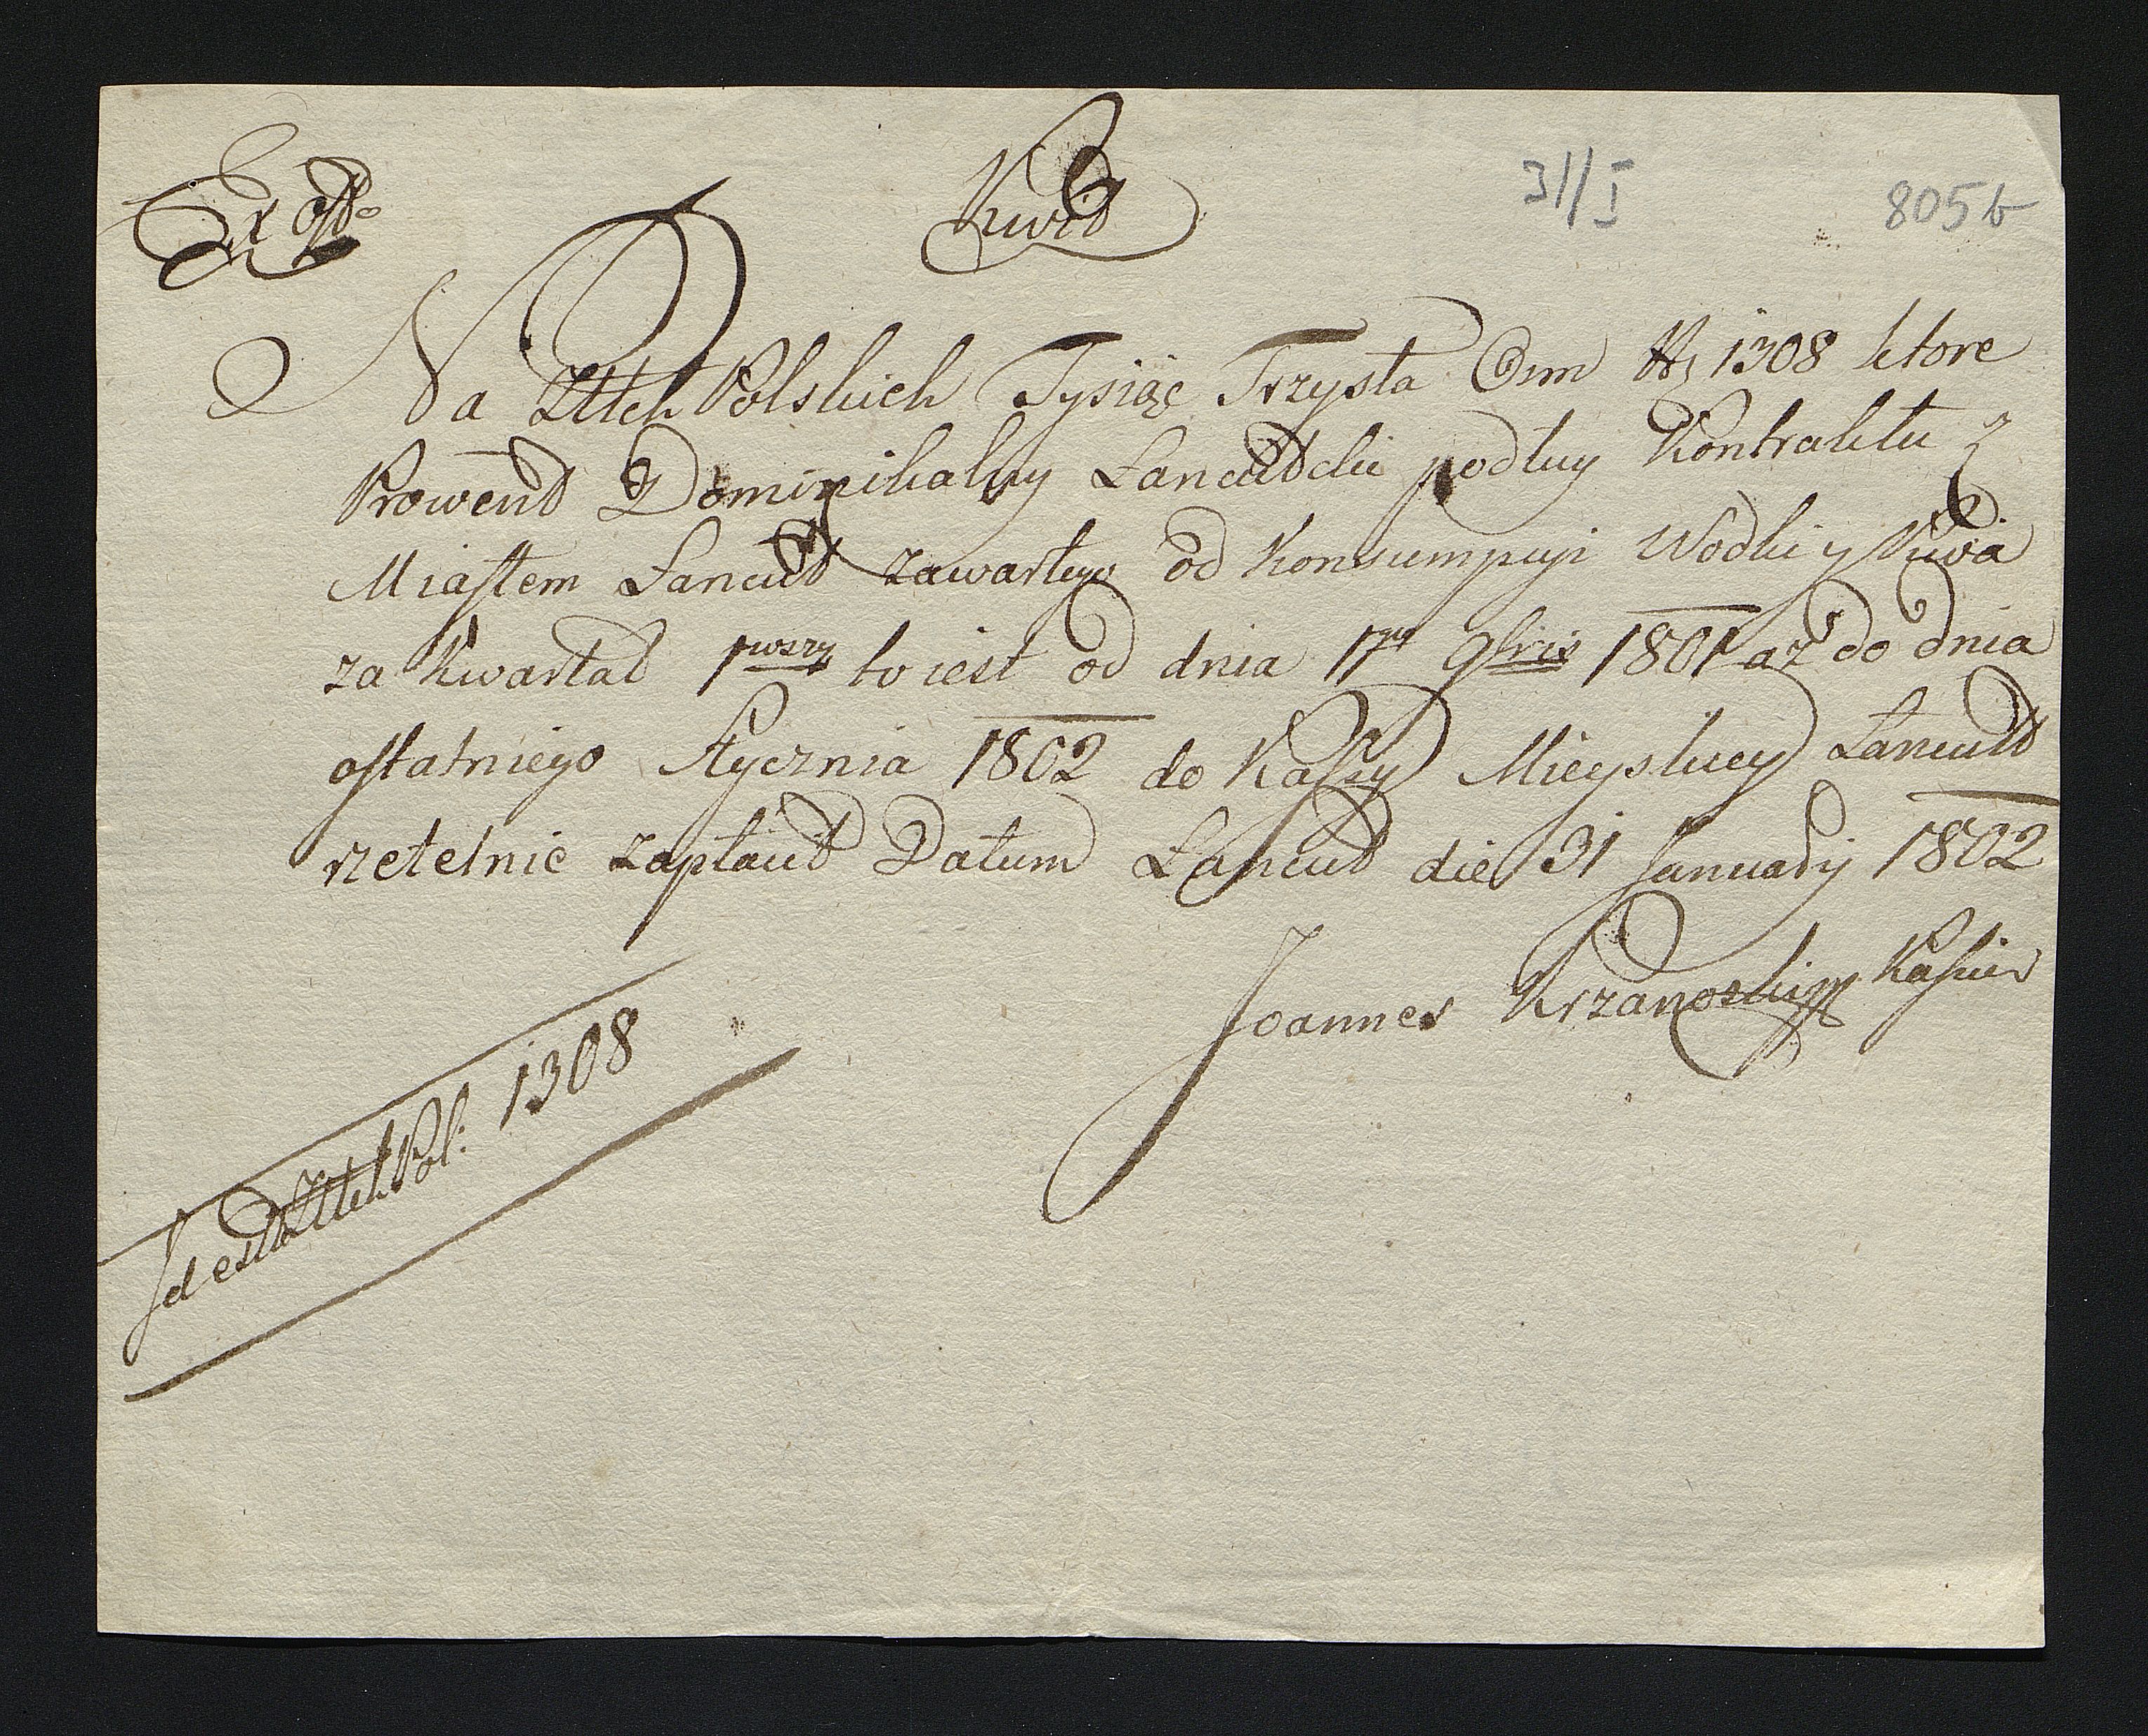 Kwit
31/I
805b
Na Złtch Polskich Tysiąc Trzysta Osm 1308 ktore
Prowent Dominikalny Lancutcki podług Kontraktu z
Miastem Lancut zawartego od Konsumpcyi Wodki y Piwa
za Kwartał 1wszy to iest od dnia 1go 9bris 1801 aż do dnia
ostatniego Stycznia 1802 do Kassy Mieyskiey Lancut
rzetelnie zapłacił Datum Lancut die 31 January 1802
Joannes Krzanoski Kassier
Id est Złtch Pol: 1308